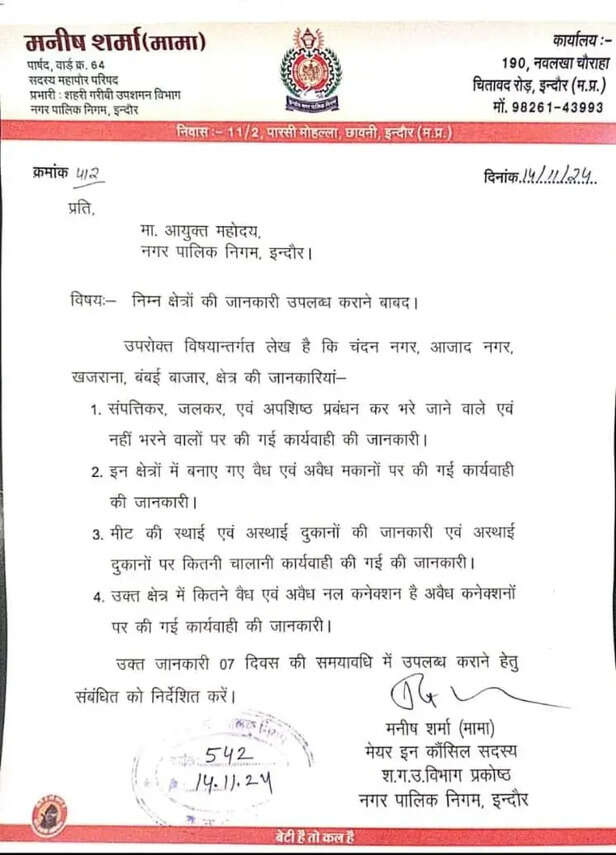 मनीष शर्मा(मामा)
पार्षद, वार्ड क्र. 64
सदस्य महापोर परिषद
प्रभारी : शहरी गरीबी उपशमन विभाग
नगर पालिक निगम, इन्दौर
कार्यालय :-
190, नवलखा चौराहा
चितावद रोड़, इन्दौर (म.प्र.)
मों. 98261-43993
निवास :- 11/2, पारसी मोहल्ला, छावनी, इन्दौर (म.प्र.)
क्रमांक 412
दिनांक 14/11/24
प्रति,
मा. आयुक्त महोदय,
नगर पालिक निगम, इन्दौर।
विषयः– निम्न क्षेत्रों की जानकारी उपलब्ध कराने बाबद।
उपरोक्त विषयान्तर्गत लेख है कि चंदन नगर, आजाद नगर,
खजराना, बंबई बाजार, क्षेत्र की जानकारियां–
1. संपत्तिकर, जलकर, एवं अपशिष्ठ प्रबंधन कर भरे जाने वाले एवं
नहीं भरने वालों पर की गई कार्यवाही की जानकारी।
2. इन क्षेत्रों में बनाए गए वैध एवं अवैध मकानों पर की गई कार्यवाही
की जानकारी।
3. मीट की स्थाई एवं अस्थाई दुकानों की जानकारी एवं अस्थाई
दुकानों पर कितनी चालानी कार्यवाही की गई की जानकारी।
4. उक्त क्षेत्र में कितने वैध एवं अवैध नल कनेक्शन है अवैध कनेक्शनों
पर की गई कार्यवाही की जानकारी।
उक्त जानकारी 07 दिवस की समयावधि में उपलब्ध कराने हेतु
संबंधित को निर्देशित करें।
मनीष शर्मा (मामा)
मेयर इन कौंसिल सदस्य
श.ग.उ.विभाग प्रकोष्ठ
नगर पालिक निगम, इन्दौर
542
14.11.24
बेटी है तो कल है